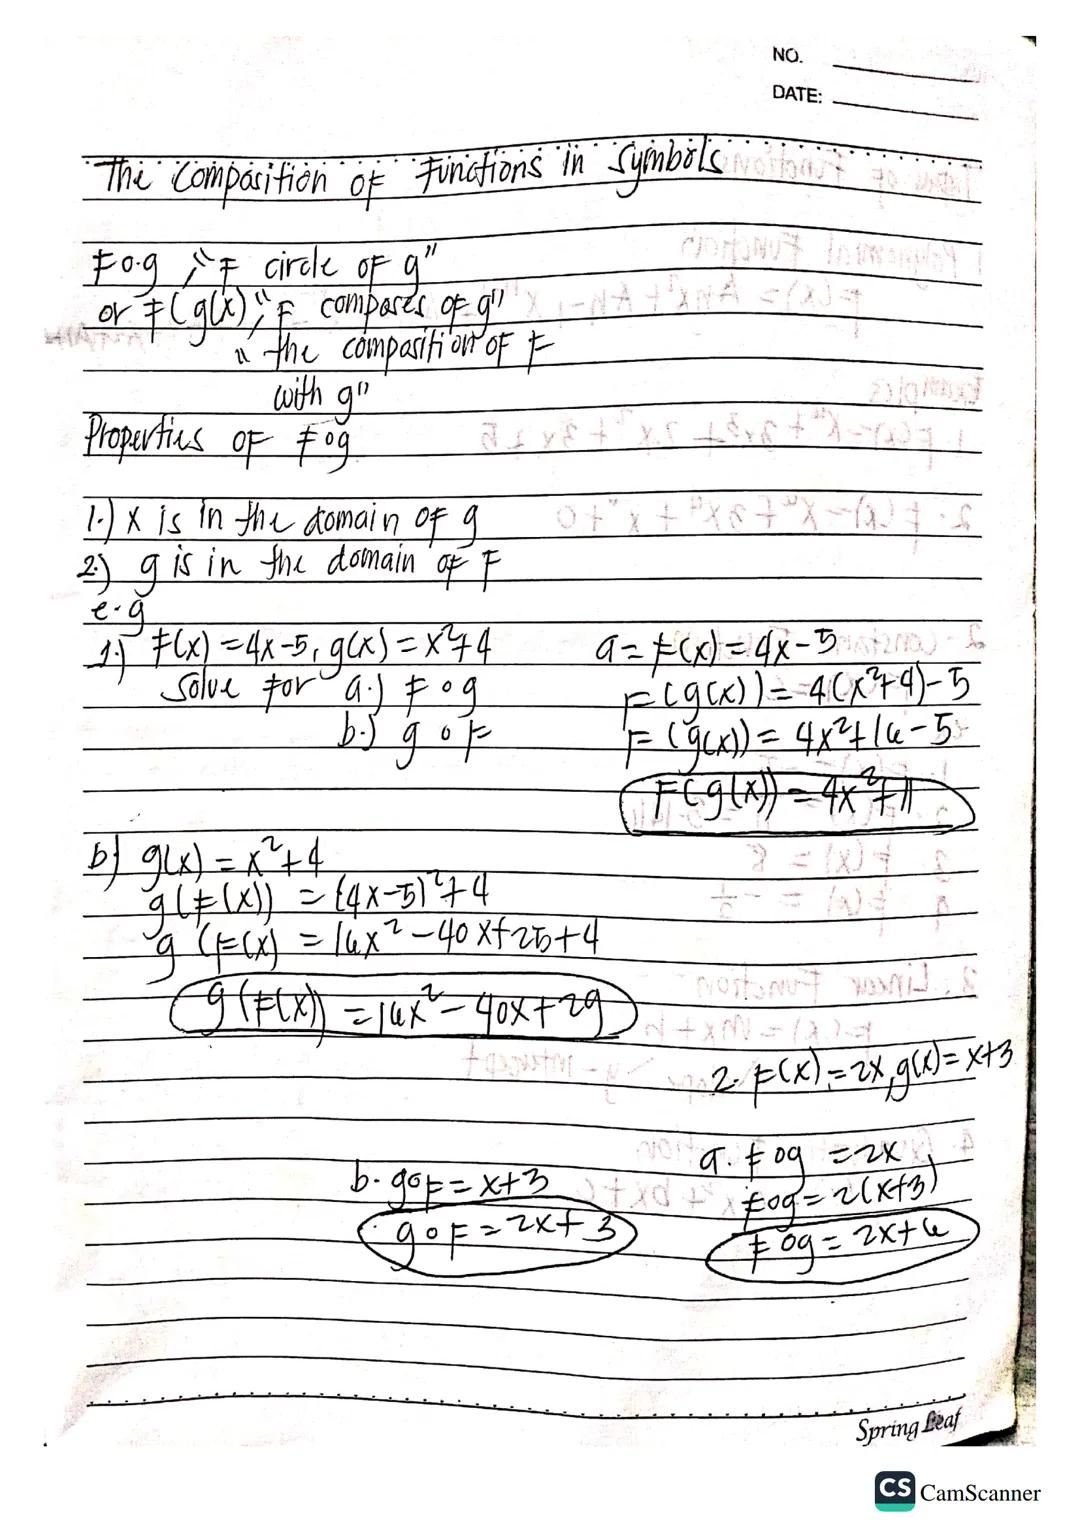 NO.
DATE:
The Composition of Functions in Symbols
Fog, "F circle of g"
or F(g(x), "F composes of g"
" the composition of F
with g"
Properties of Fog
1.) x is in the domain of g
2.) g is in the domain of F
e.g
1.) F(x) = 4x-5, g(x) = x²+4
Solve for a.) F o g
b.) g o F
a = F(x) = 4x-5
F(g(x)) = 4(x²+4)-5
F(g(x)) = 4x²+16-5
F(g(x)) = 4x²+11
b) g(x) = x²+4
g(F(x)) = (4x-5)²+4
g(F(x) = 16x²-40x+25+4
g(F(x)) = 16x²-40x+29
2. F(x) = 2x, g(x) = x+3
a. Fog = 2x
Fog = 2(x+3)
Fog = 2x+6
b. goF = x+3
goF = 2x+3
Spring Leaf
CS CamScanner